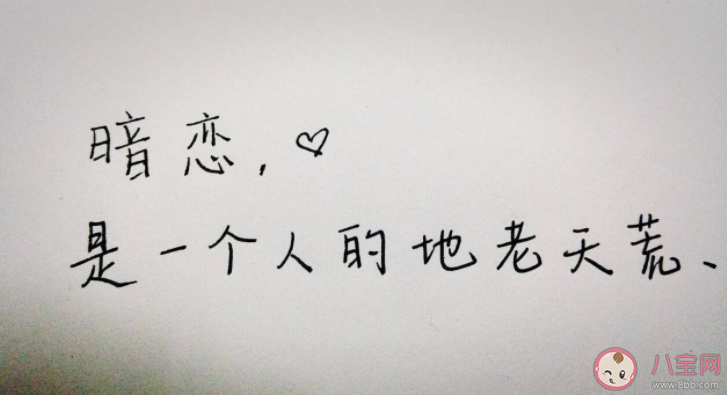 暗恋,♡
是一个人的地老天荒、
八宝网
www.8bb.com